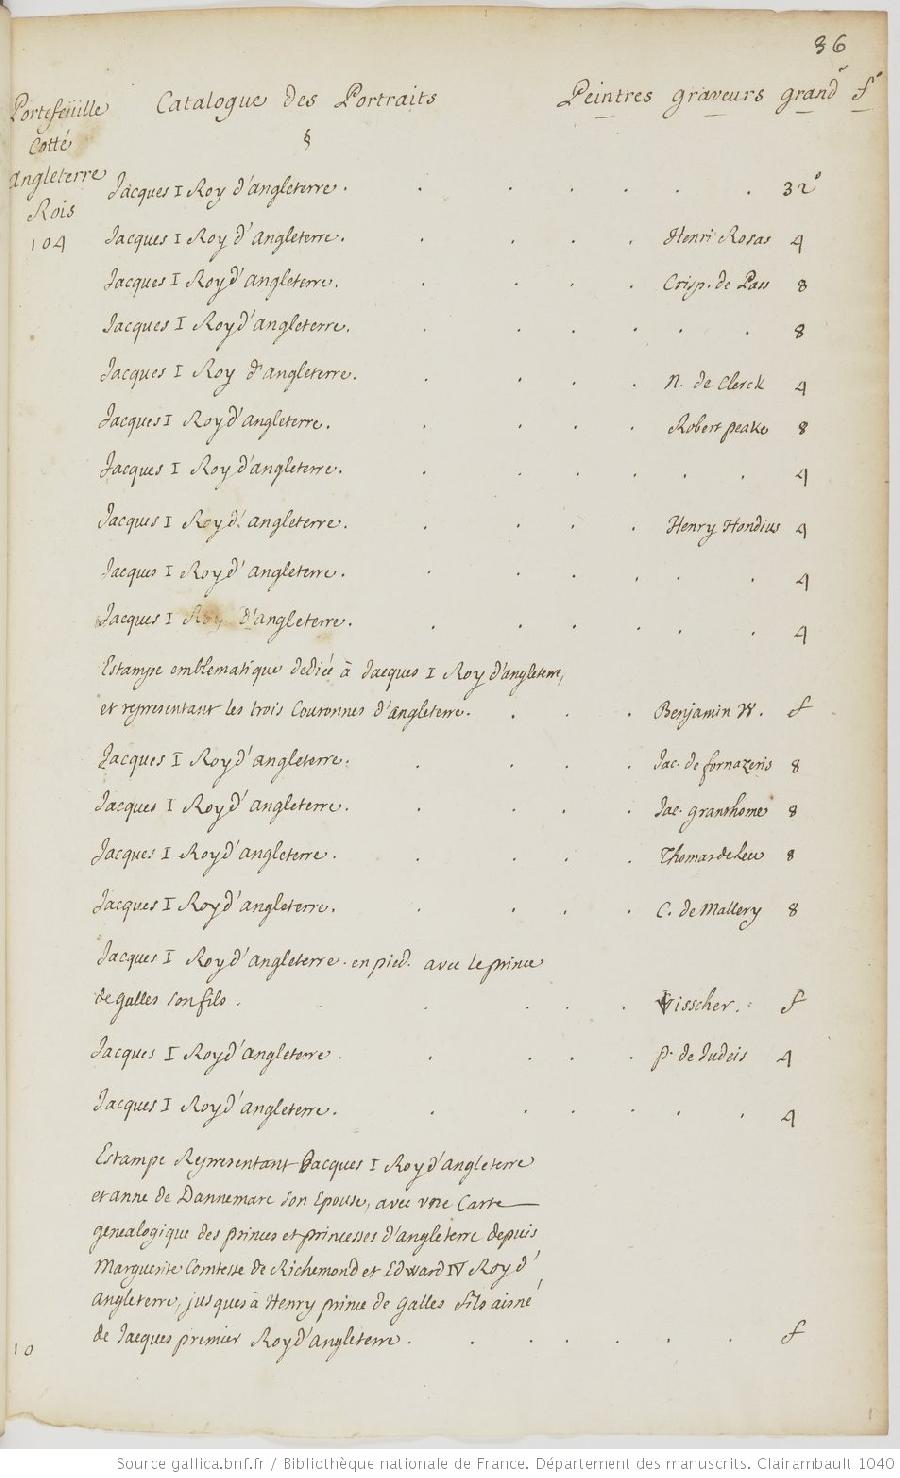 36
Portefeüille Catalogue des Portraits Peintres graveurs grandʳ fº
Cotté §
angleterre
Rois
104
Jacques I Roy d'angleterre. 32º
Jacques I Roy d'angleterre. Henri Rosas 4
Jacques I Roy d'angleterre. Crisp. de Pass 8
Jacques I Roy d'angleterre. 8
Jacques I Roy d'angleterre. N. de Clerck 4
Jacques I Roy d'angleterre. Robert peake 8
Jacques I Roy d'angleterre. 4
Jacques I Roy d'angleterre. Henry Hondius 4
Jacques I Roy d'angleterre. 4
Jacques I Roy d'angleterre. 4
Estampe emblematique dediée à Jacques I Roy d'angleterre,
et representant les trois Couronnes d'angleterre. Benjamin W. f
Jacques I Roy d'angleterre. Jac. de fornazeris 8
Jacques I Roy d'angleterre. Jac. granthome 8
Jacques I Roy d'angleterre. Thomas de Leu 8
Jacques I Roy d'angleterre. C. de Mallery 8
Jacques I Roy d'angleterre. en pied. avec le prince
de galles son fils. Visscher. f
Jacques I Roy d'angleterre p. de Judeis 4
Jacques I Roy d'angleterre. 4
Estampe Representant Jacques I Roy d'angleterre
et anne de Dannemarc son Epouse, avec vne Carte
genealogique des princes et princesses d'angleterre depuis
Marguerite Comtesse de Richemond et Edward IV Roy d'
angleterre, jusques à Henry prince de galles fils aisné
de Jacques premier Roy d'angleterre. f
10
Source gallica.bnf.fr / Bibliothèque nationale de France. Département des manuscrits. Clairambault 1040